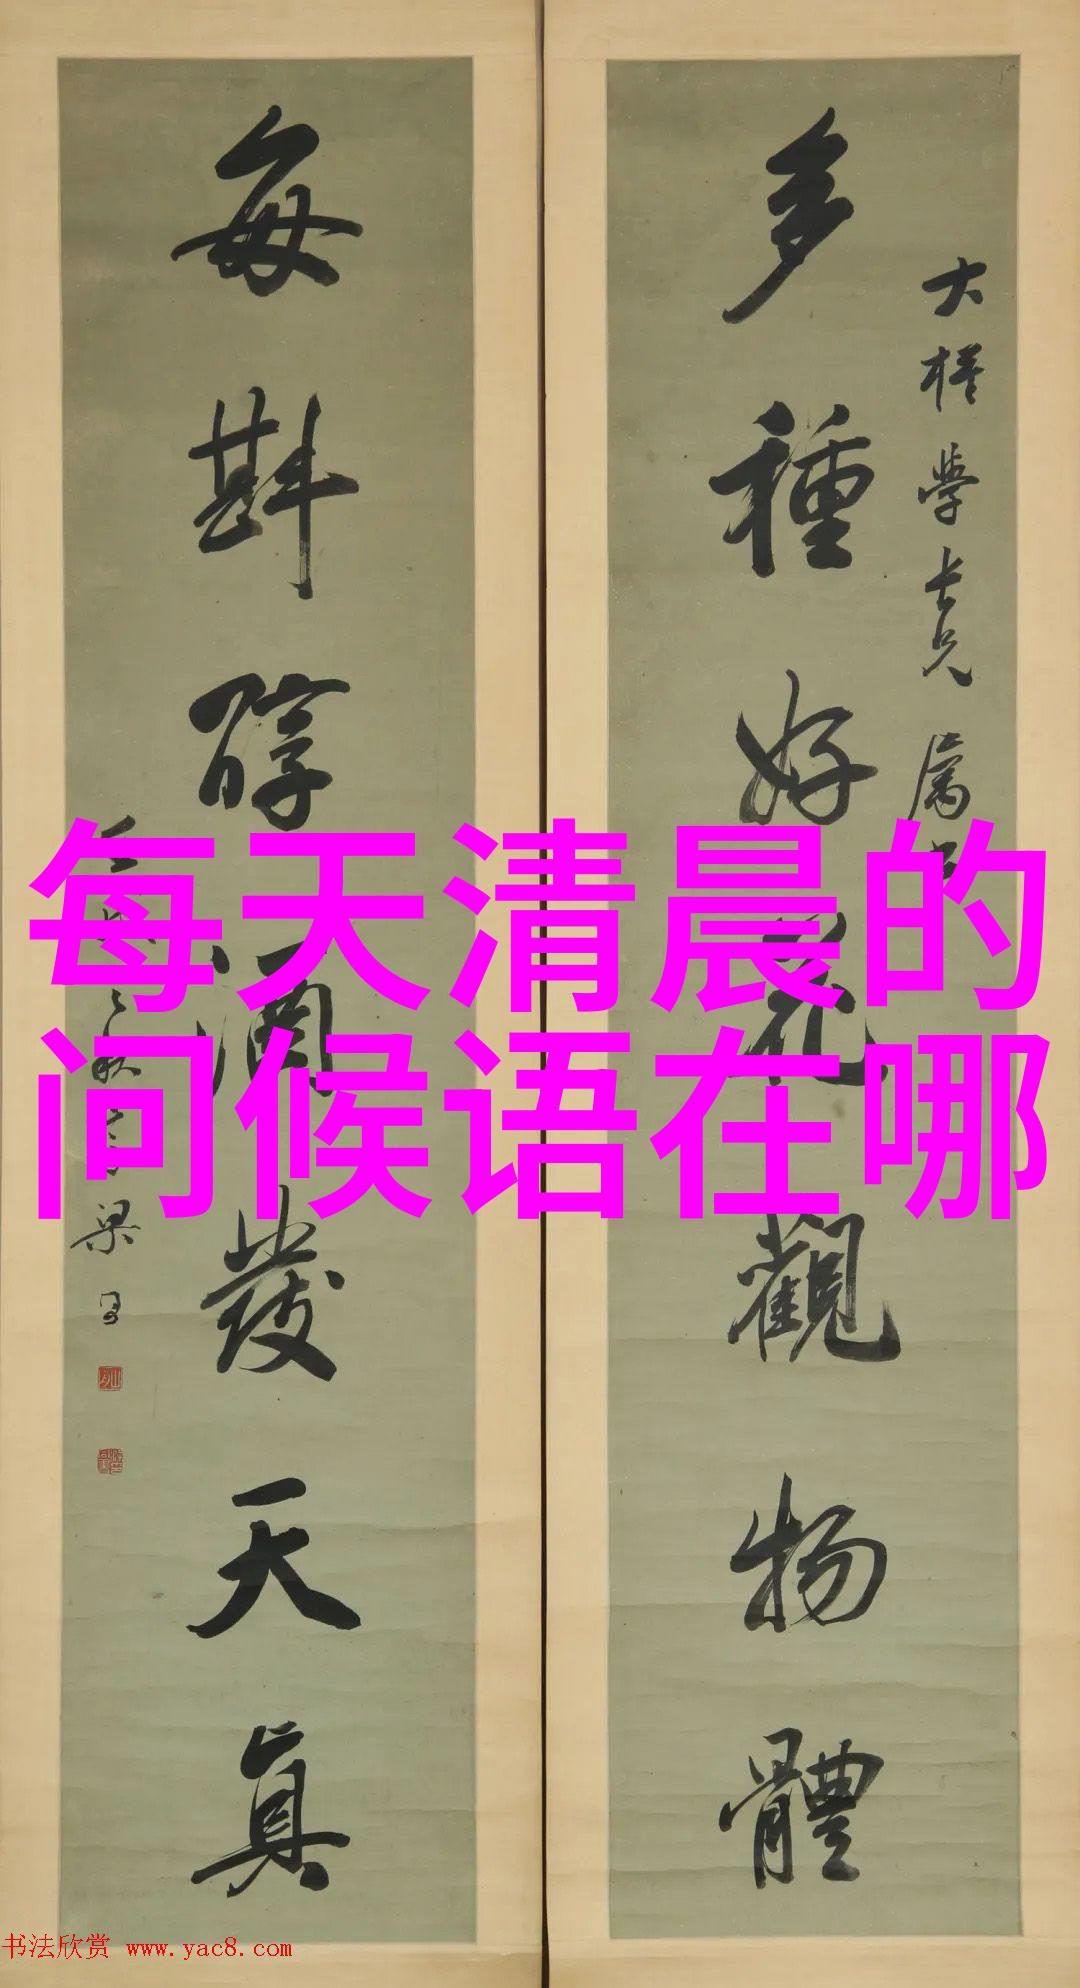 多種好花觀物體
大楳學長兄屬
每斟醇酒發天真
梁
每天清晨的
问候语在哪
书法欣赏 www.yac8.com